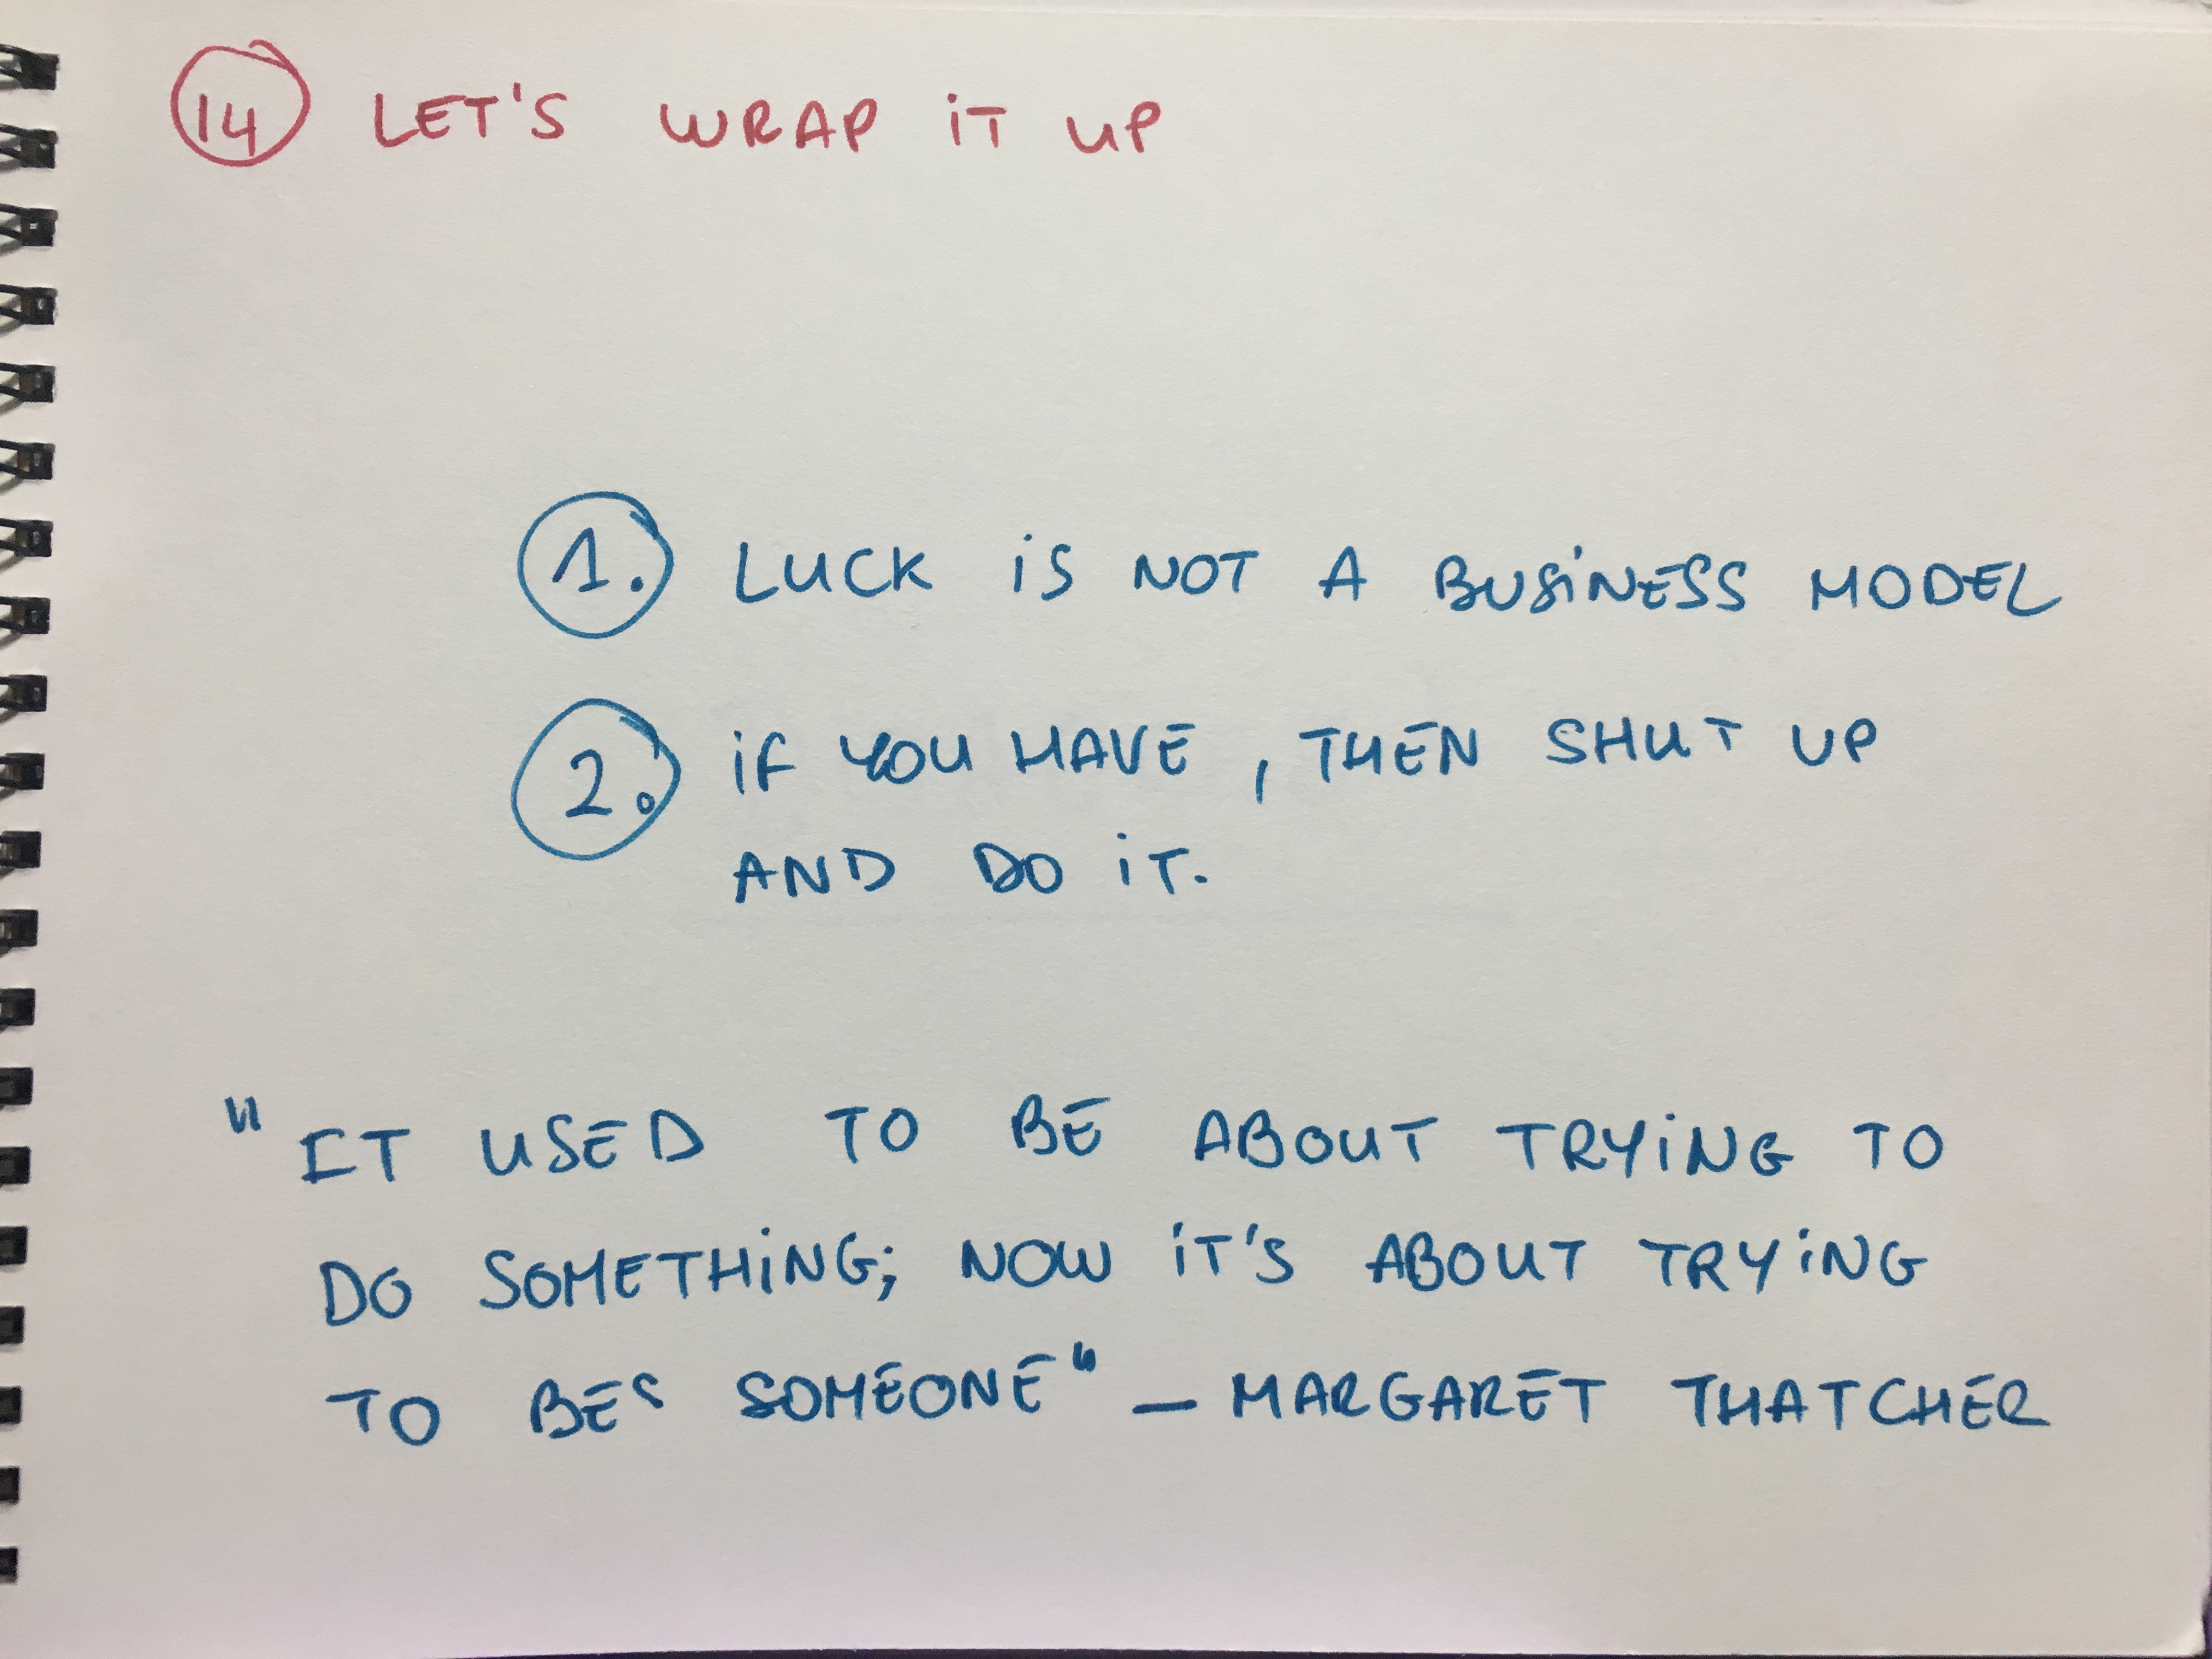 14 LET'S WRAP iT UP
1. LUCK iS NOT A BUSiNESS MODEL
2. iF YOU HAVE , THEN SHUT UP
AND DO iT.
"IT USED TO BE ABOUT TRYiNG TO
DO SOMETHiNG; NOW iT'S ABOUT TRYiNG
TO BES SOMEONE" - MARGARET THATCHER